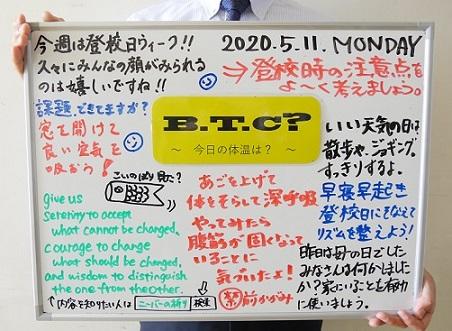 今週は登校日ウィーク!!
久々にみんなの顔がみられる
のは嬉しいですね!!
2020.5.11. MONDAY
⇒登校時の注意点を
よ〜く考えましょう。
課題できてますか?
窓を開けて
良い空気を
吸おう!
B.T.C?
〜 今日の体温は? 〜
いい天気の日は
散歩や、ジョギング。
すっきりするよ。
早寝早起き
登校日にそなえて
リズムを整えよう!
こいのぼり見た?
give us
serenity to accept
what cannot be changed,
courage to change
what should be changed,
and wisdom to distinguish
the one from the other.
↑内容を知りたい人は ニーバーの祈り 検索
あごを上げて
体をそらして深呼吸
やってみたら
腹筋が固くなって
いることに
気づいたよ!
禁 前かがみ
昨日は母の日でした
みなさんは何かしました
か?家にいることも有効
に使いましょう。